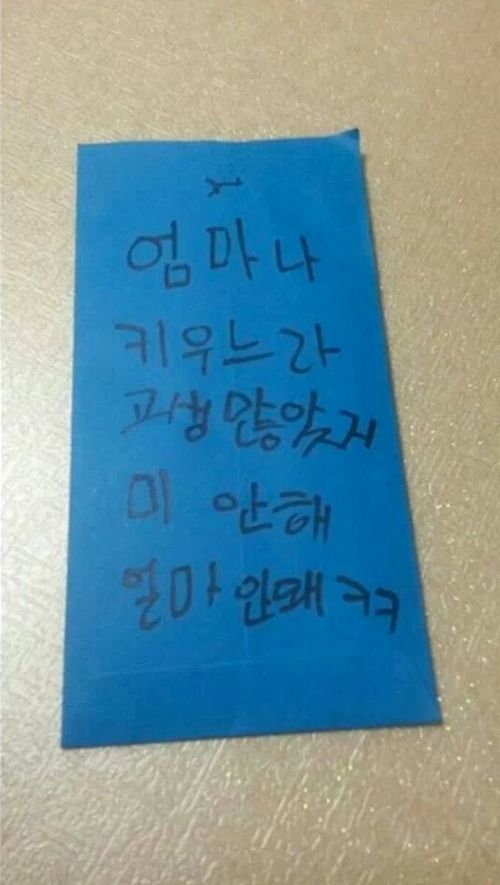 엄마나
키우느라
고생많앗지
미 안해
얼마 안돼 ㅋㅋ